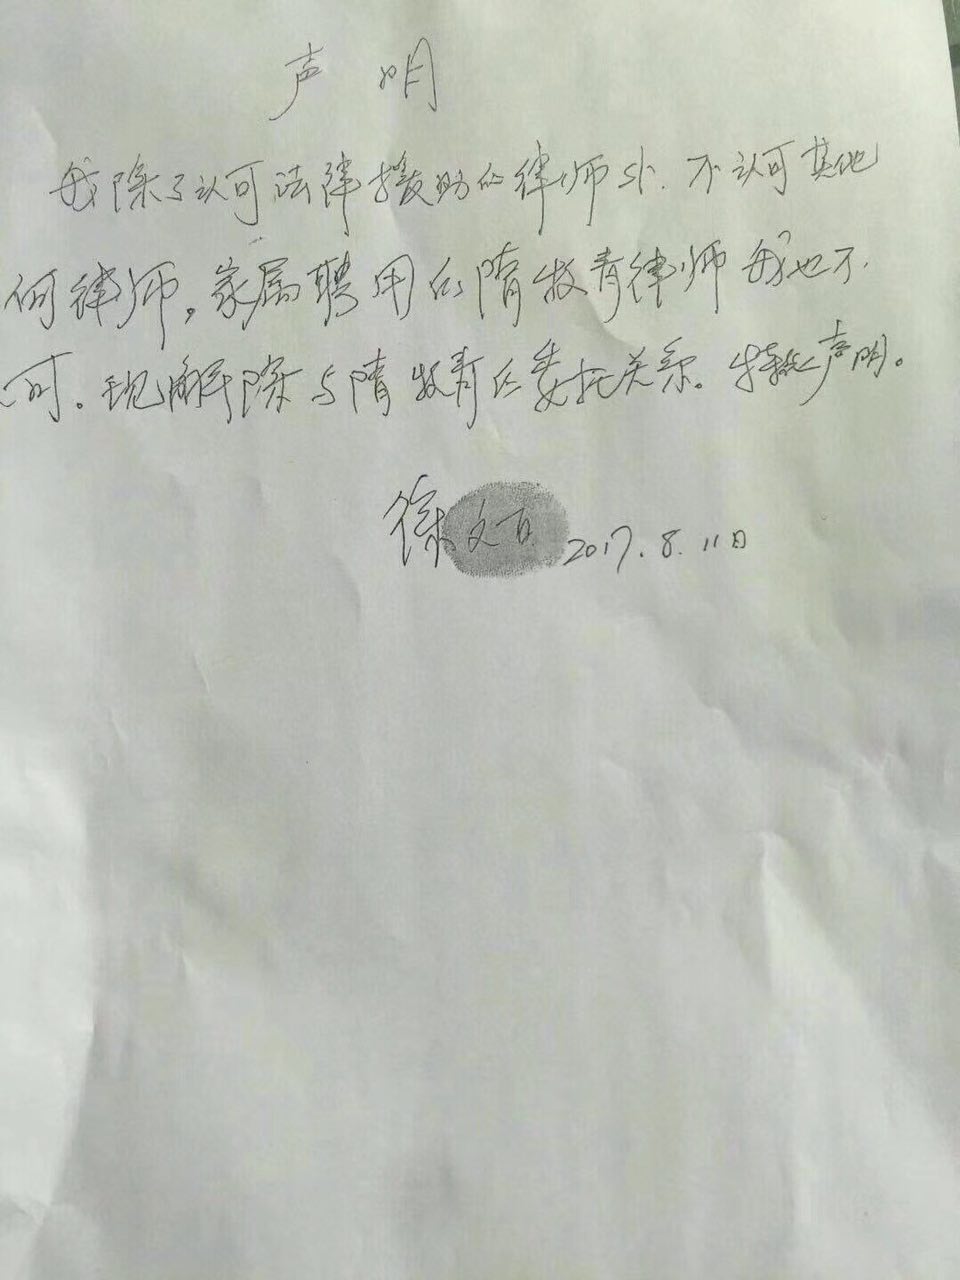 声明
我除了认可法律援助的律师外.不认可其他
何律师。家属聘用的隋牧青律师我也不
可。现解除与隋牧青的委托关系。特此声明。
徐文 2017.8.11日